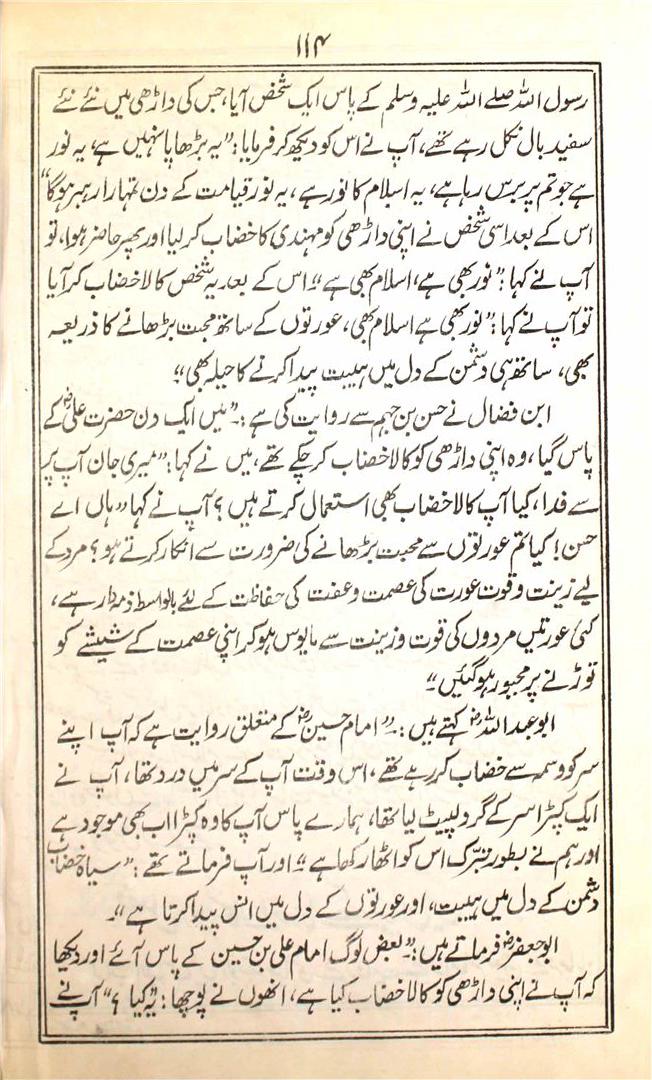 ۱۱۴
رسول اللہ صلے اللہ علیہ وسلم کے پاس ایک شخص آیا، جس کی داڑھی میں نئے نئے
سفید بال نکل رہے تھے، آپ نے اس کو دیکھ کر فرمایا: ”یہ بڑھاپا نہیں ہے، یہ نور
ہے جو تم پر برس رہا ہے، یہ اسلام کا نور ہے، یہ نور قیامت کے دن تمہارا رہبر ہوگا“
اس کے بعد اسی شخص نے اپنی داڑھی کو مہندی کا خضاب کر لیا اور پھر حاضر ہوا، تو
آپ نے کہا: ”نور بھی ہے، اسلام بھی ہے“ اس کے بعد یہ شخص کالا خضاب کر آیا
تو آپ نے کہا: ”نور بھی ہے اسلام بھی، عورتوں کے ساتھ محبت بڑھانے کا ذریعہ
بھی، ساتھ ہی دشمن کے دل میں ہیبت پیدا کرنے کا حیلہ بھی“
ابن فضال نے حسن بن جہم سے روایت کی ہے:۔ ”میں ایک دن حضرت علیؓ کے
پاس گیا، وہ اپنی داڑھی کو کالا خضاب کر چکے تھے، میں نے کہا: ”میری جان آپ پر
سے فدا، کیا آپ کالا خضاب بھی استعمال کرتے ہیں؟ آپ نے کہا ”ہاں اے
حسن! کیا تم عورتوں سے محبت بڑھانے کی ضرورت سے انکار کرتے ہو؟ مرد کے
لیے زینت و قوت عورت کی عصمت و عفت کی حفاظت کے لئے بالواسطہ ذمہ دار ہے،
کئی عورتیں مردوں کی قوت و زینت سے مایوس ہو کر اپنی عصمت کے شیشے کو
توڑنے پر مجبور ہو گئیں“
ابو عبداللہؓ کہتے ہیں:۔ ”امام حسینؓ کے متعلق روایت ہے کہ آپ اپنے
سر کو وسمہ سے خضاب کر رہے تھے، اس وقت آپ کے سر میں درد تھا، آپ نے
ایک کپڑا سر کے گرد لپیٹ لیا تھا، ہمارے پاس آپ کا وہ کپڑا اب بھی موجود ہے
اور ہم نے بطور تبرک اس کو اٹھا رکھا ہے“ اور آپ فرماتے تھے: ”سیاہ خضاب
دشمن کے دل میں ہیبت، اور عورتوں کے دل میں انس پیدا کرتا ہے“۔
ابو جعفرؓ فرماتے ہیں:۔ ”بعض لوگ امام علی بن حسین کے پاس آئے اور دیکھا
کہ آپ نے اپنی داڑھی کو کالا خضاب کیا ہے، انھوں نے پوچھا: ”یہ کیا؟“ آپ نے